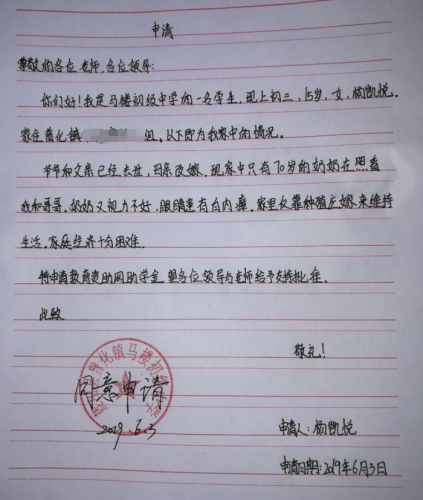 申请
尊敬的各位老师,各位领导:
你们好!我是马楼初级中学的一名学生,现上初三,15岁,女,杨凯悦。
家住 化镇 组。以下即为我家中的情况。
爷爷和父亲已经去世,母亲改嫁,现家中只有70岁的奶奶在照看
我和哥哥,奶奶又视力不好,眼睛患有白内瘴,家里仅靠种殖庄嫁来维持
生活,家庭经济十分困难。
特申请教育资助网助学金,望各位领导与老师给予支持批准。
此致
敬礼!
化镇马楼初级中学
同意申请
2019.6.3
申请人:杨凯悦
申请日期:2019年6月3日